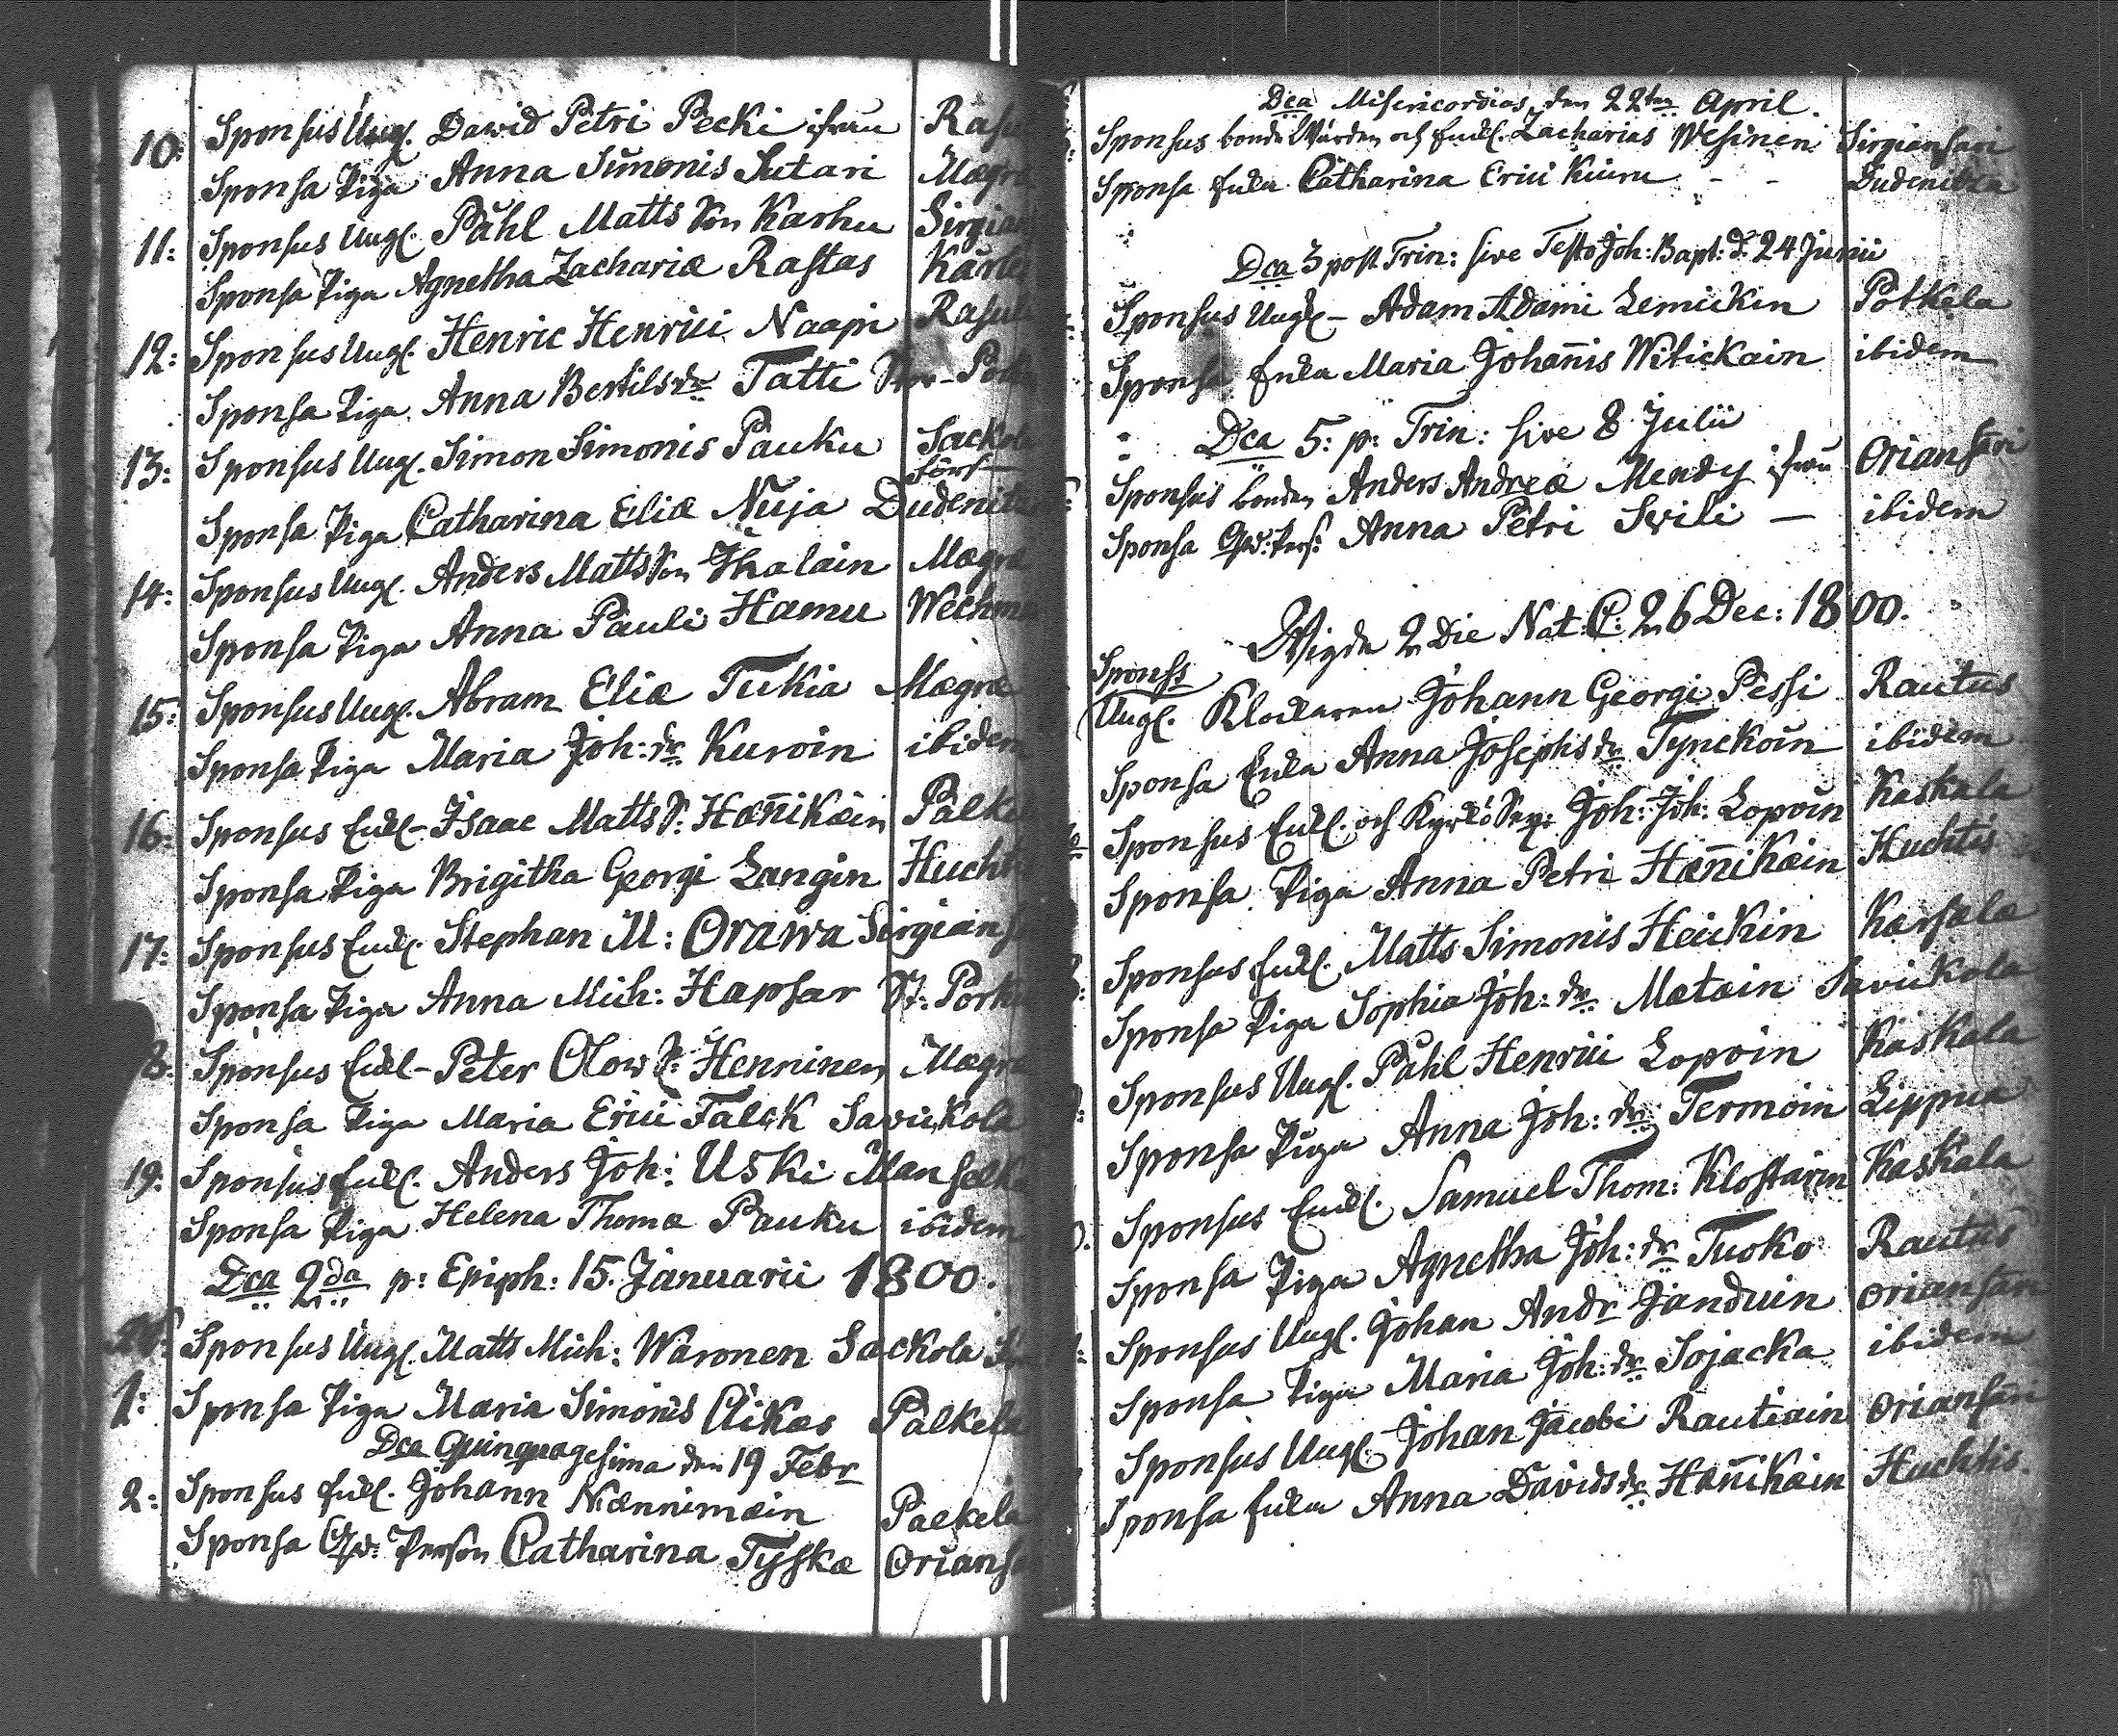 10: Sponsus Ungl. Dawid Petri Pecki ifrån Rasu
Sponsa Piga Anna Simonis Sutari Mægrä
11: Sponsus Ungl. Påhl Matts Son Karhu Sirgian
Sponsa Piga Agnetha Zachariæ Rastas
12: Sponsus Ungl. Henric Henrici Naapi Rasul
Sponsa Piga Anna Bertils dr Tatti
13: Sponsus Ungl. Simon Simonis Pauku Sackol
Sponsa Piga Catharina Eliæ Nuja Dudenit
14: Sponsus Ungl. Anders Matts Son Ihalain Mægrä
Sponsa Piga Anna Pauli Hamu Wechm
15: Sponsus Ungl. Abram Eliæ Tukia Mægrä
Sponsa Piga Maria Joh: dr Kuroin ibidem
16: Sponsus Enkl- Isaac Matts S: Hæn̄ikäin Palke
Sponsa Piga Brigitha Georgi Langin Hucht
17: Sponsus Enkl. Stephan M: Orawa Sirgians
Sponsa Piga Anna Mich: Hapsar St: Pork
8: Sponsus Enkl- Peter Olow S: Henninen Mægrä
Sponsa Piga Maria Erici Falck Savickola
19: Sponsus Enkl. Anders Joh: Uski Manselk
Sponsa Piga Helena Thomæ Pauku ibidem
Dca 2da p: Epiph: 15. Januarii 1800.
Sponsus Ungl. Matts Mich: Waronen Sackola
1: Sponsa Piga Maria Simonis Äikæs Palkela
Dca Quinquagesima den 19 Febr
2: Sponsus Enkl. Johann Nænnimäin Palkela
Sponsa Person Catharina Tyskæ Orians
Dca Misericordias den 22ten April.
Sponsus bonde Wärden och Enkl. Zacharias Wesinen Sirgiansari
Sponsa Enka Catharina Erici Kiuru - - Dudenitza
Dca 3 post Trin: sive Festo Joh: Bapt: d. 24 Junii
Sponsus Ungl- Adam Adami Lemickin Potkela
Sponsa Enka Maria Johan̄is Witickain ibidem
Dca 5: p: Trin: sive 8 Julii
Sponsus bonden Anders Andreæ Mendy ifrån Oriansari
Sponsa Pers: Anna Petri Swili — ibidem
Wigde 2 Die Nat: C: 26 Dec: 1800.
Sponss
Ungl. Klockaren Johann Georgi Pessi Rautus
Sponsa Enka Anna Josephs dr Tynckoin ibidem
Sponsus Enkl. och Joh: Joh: Lopoin Kaskala
Sponsa Piga Anna Petri Hæn̄ikäin Huchtis
Sponsus Enkl. Matts Simonis Heickin Karsala
Sponsa Piga Sophia Joh: dr Mätäin Savickola
Sponsus Ungl. Påhl Henrici Lopoin Kaskala
Sponsa Piga Anna Joh: dr Termoin Lippua
Sponsus Enkl. Samuel Thom: Klostarin Kaskala
Sponsa Piga Agnetha Joh: dr Tuoko Rautus
Sponsus Ungl. Johan Andr Janduin Oriansari
Sponsa Piga Maria Joh: dr Sojacka ibidem
Sponsus Ungl. Johan Jacobi Rautiain Oriansari
Sponsa Enka Anna Davids dr Hæn̄ikäin Huchtis.